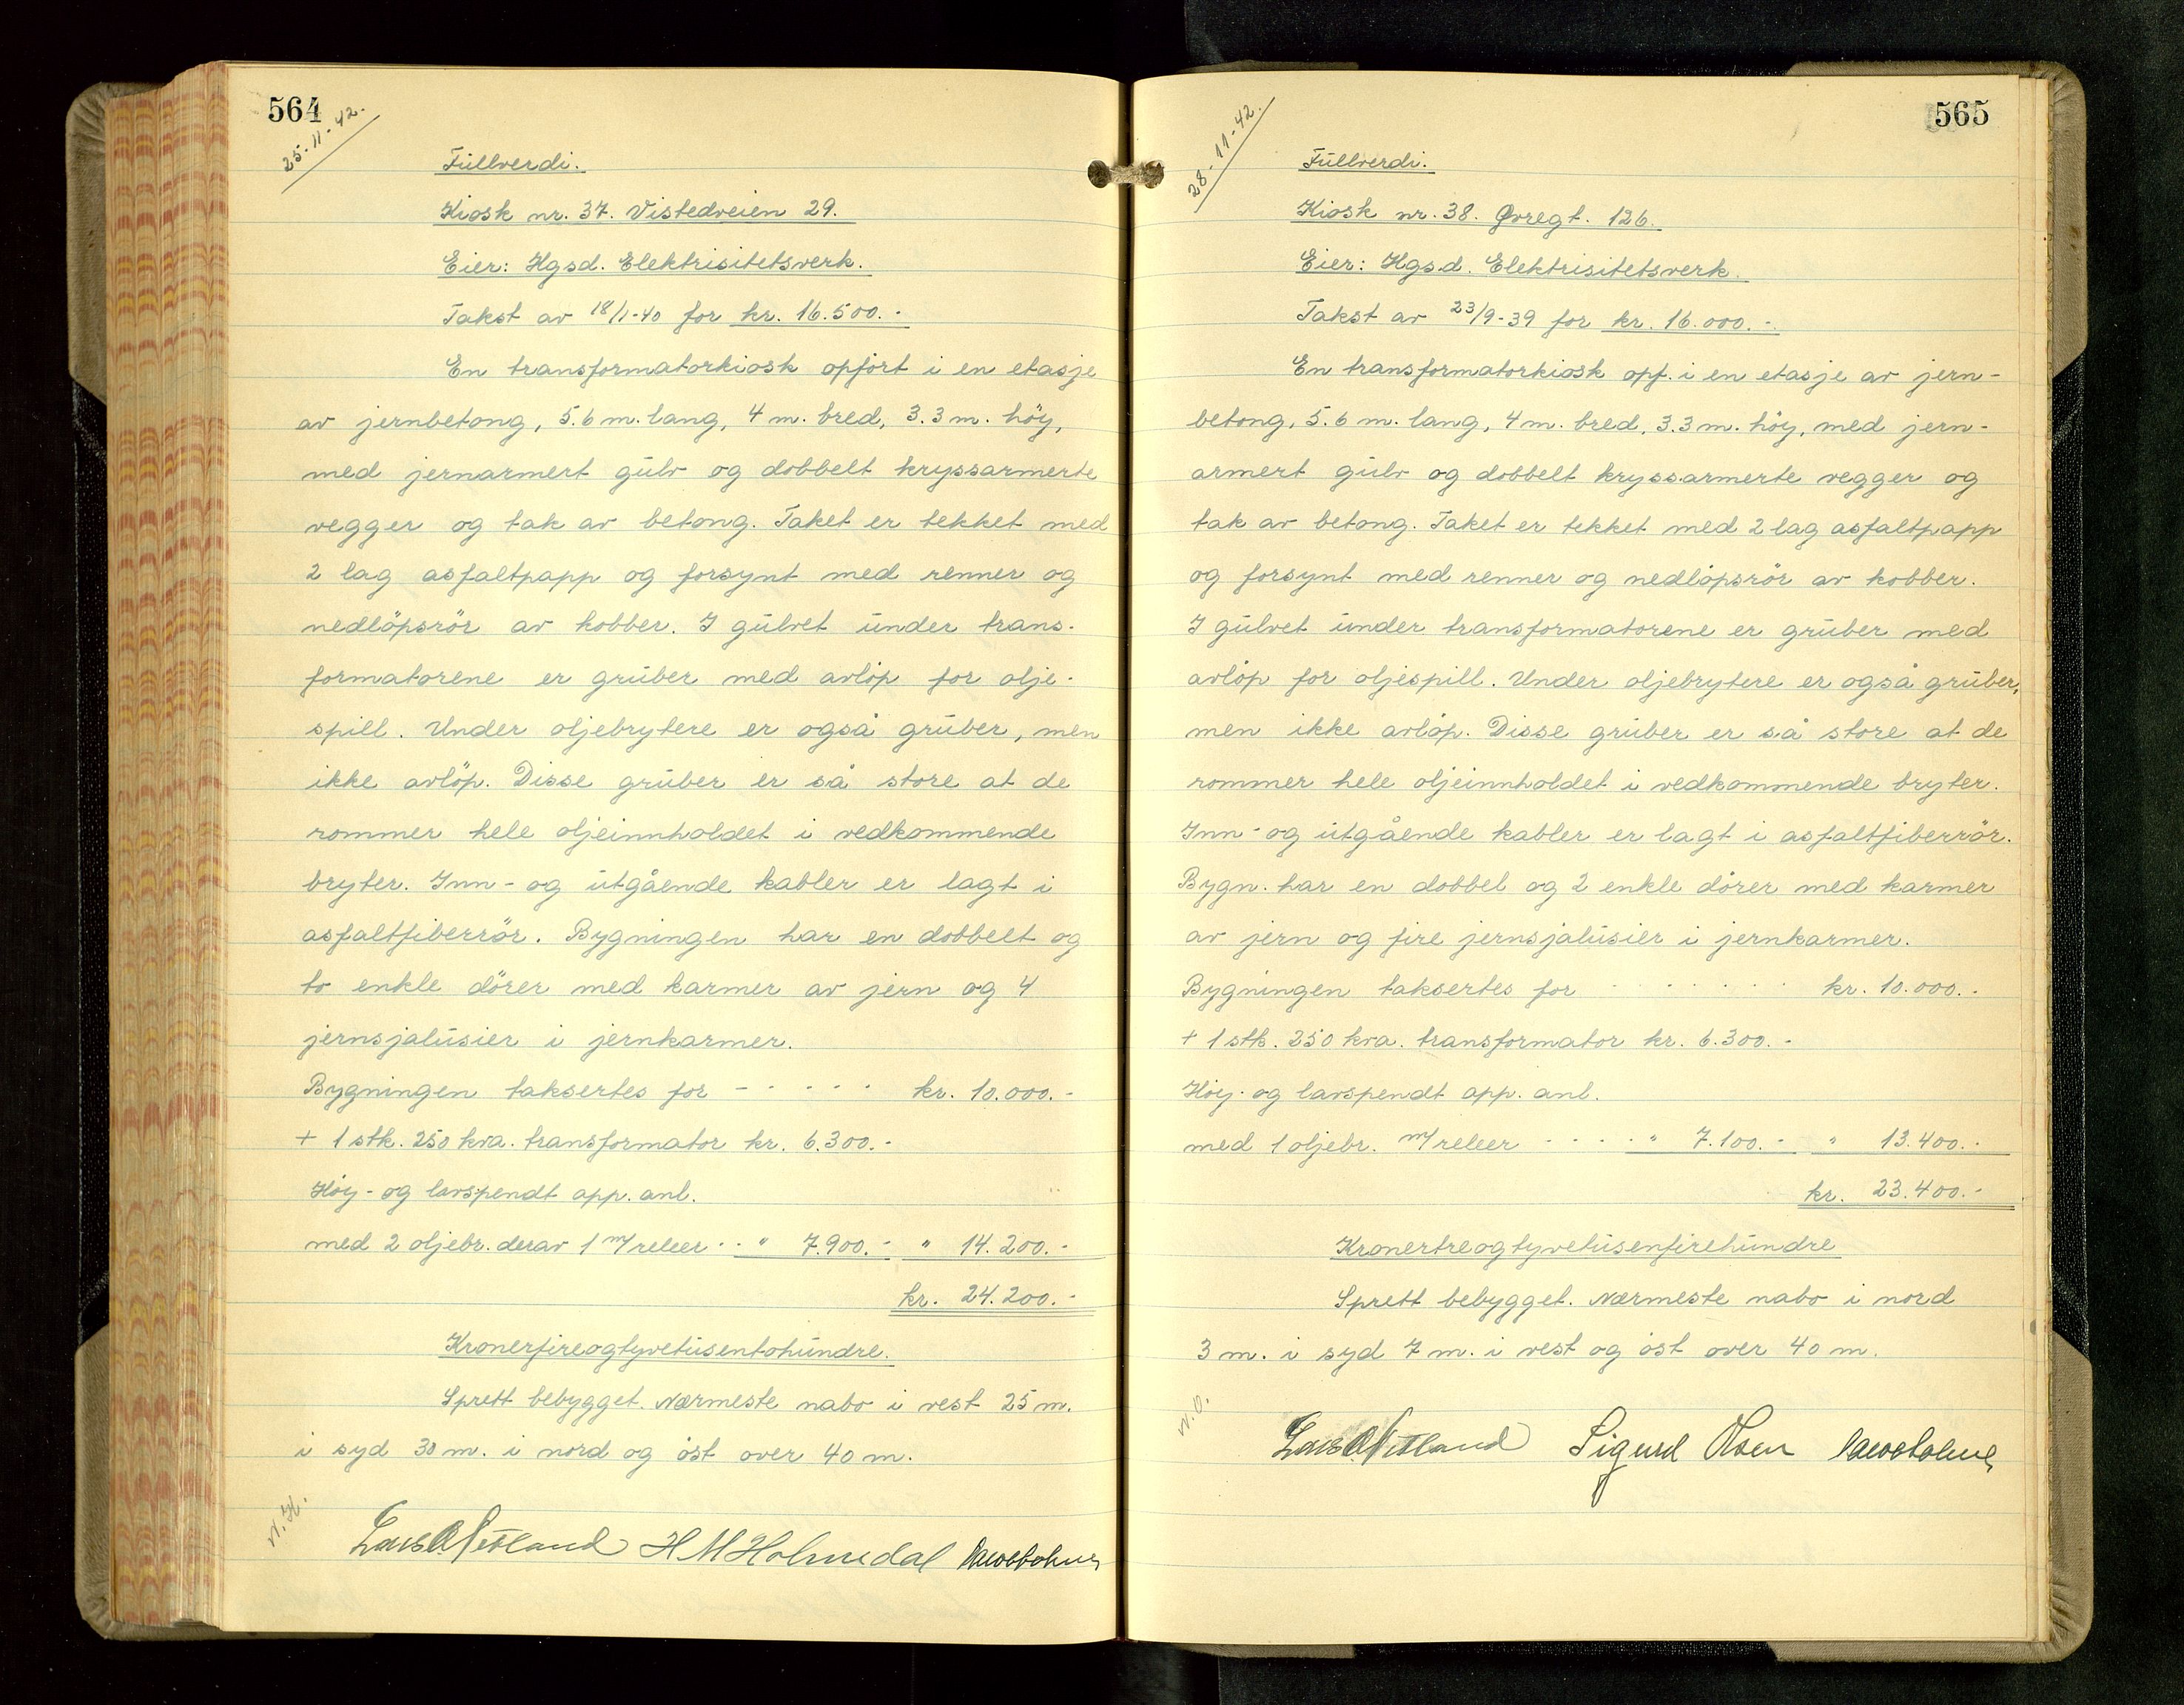 564
25-11-42.
Fullverdi.
Kiosk nr. 37. Vistedveien 29.
Eier: Hgsd. Elektrisitetsverk.
Takst av 18/1-40 for kr. 16.500.-
En transformatorkiosk opfört i en etasje
av jernbetong, 5.6 m. lang, 4 m. bred, 3.3 m. höy,
med jernarmert gulv og dobbelt kryssarmerte
vegger og tak av betong. Taket er tekket med
2 lag asfaltpapp og forsynt med renner og
nedlöpsrör av kobber. I gulvet under trans-
formatorene er gruber med avlöp for olje-
spill. Under oljebrytere er også gruber, men
ikke avlöp. Disse gruber er så store at de
rommer hele oljeinnholdet i vedkommende
bryter. Inn- og utgående kabler er lagt i
asfaltfiberrör. Bygningen har en dobbelt og
to enkle dörer med karmer av jern og 4
jernsjalusier i jernkarmer.
Bygningen taksertes for - - - - - kr. 10.000.-
+ 1 stk. 250 kva. transformator kr. 6.300.-
Höy- og lavspendt app. anl.
med 2 oljebr. derav 1 m/releer - - " 7.900.- " 14.200.-
kr. 24.200.-
Kronerfireogtyvetusentohundre.
Sprett bebygget. Nærmeste nabo i vest 25 m.
i syd 30 m. i nord og öst over 40 m.
N.H.
Lars O. Vetland H M Holmedal
565
28-11-42.
Fullverdi.
Kiosk nr. 38. Øvregt. 126.
Eier: Hgsd. Elektrisitetsverk.
Takst av 23/9-39 for kr. 16.000.-
En transformatorkiosk opf. i en etasje av jern-
betong, 5.6 m. lang, 4 m. bred, 3.3 m. höy, med jern-
armert gulv og dobbelt kryssarmerte vegger og
tak av betong. Taket er tekket med 2 lag asfaltpapp
og forsynt med renner og nedlöpsrör av kobber.
I gulvet under transformatorene er gruber med
avlöp for oljespill. Under oljebrytere er også gruber,
men ikke avlöp. Disse gruber er så store at de
rommer hele oljeinnholdet i vedkommende bryter.
Inn- og utgående kabler er lagt i asfaltfiberrör.
Bygn. har en dobbel og 2 enkle dörer med karmer
av jern og fire jernsjalusier i jernkarmer.
Bygningen taksertes for - - - - - - kr. 10.000.-
+ 1 stk. 250 kva. transformator kr. 6.300.-
Höy- og lavspendt app. anl.
med 1 oljebr. m/releer - - - - " 7.100.- " 13.400.-
kr. 23.400.-
Kronertreogtyvetusenfirehundre
Sprett bebygget. Nærmeste nabo i nord
3 m. i syd 7 m. i vest og öst over 40 m.
N.O.
Lars O. Vetland Sigurd Olsen